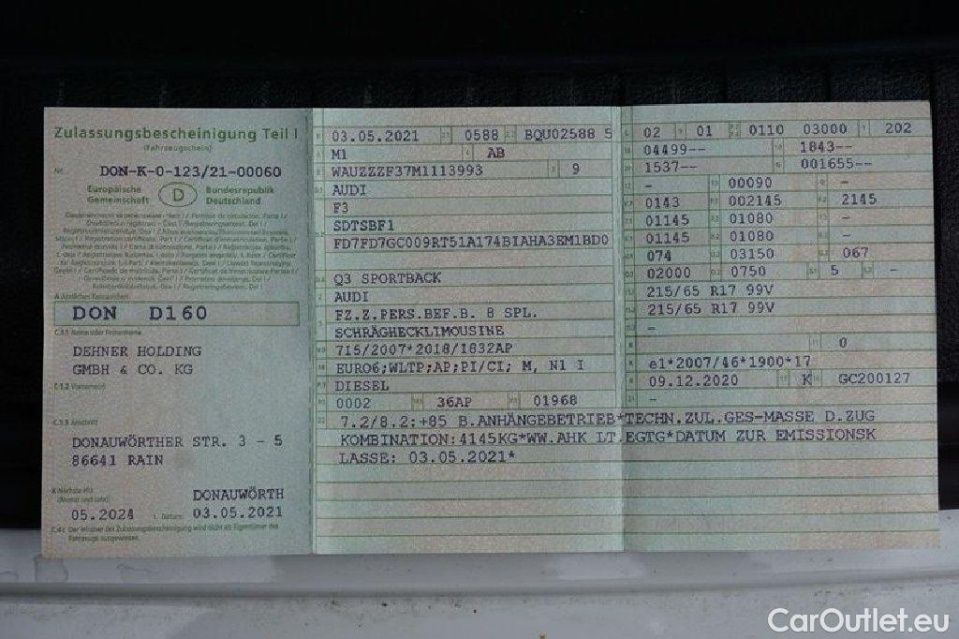 Zulassungsbescheinigung Teil I
(Fahrzeugschein)
Nr. DON-K-0-123/21-00060
Europäische Gemeinschaft
D
Bundesrepublik Deutschland
DON D160
C.1.1 Name oder Firmenname
DEHNER HOLDING
GMBH & CO. KG
C.1.2 Vorname(n)
C.1.3 Anschrift
DONAUWÖRTHER STR. 3 - 5
86641 RAIN
DONAUWÖRTH
05.2024 I Datum 03.05.2021
C.4c Der Inhaber der Zulassungsbescheinigung wird nicht als Eigentümer des
Fahrzeugs ausgewiesen.
03.05.2021 0588 BQU02588 5
M1 AB
WAUZZZF37M1113993 9
AUDI
F3
SDTSBF1
FD7FD7GC009RT51A174BIAHA3EM1BD0
Q3 SPORTBACK
AUDI
FZ.Z.PERS.BEF.B. 8 SPL.
SCHRÄGHECKLIMOUSINE
715/2007*2018/1832AP
EURO6;WLTP;AP;PI/CI; M, N1 I
DIESEL
0002 36AP 01968
7.2/8.2:+85 B.ANHÄNGEBETRIEB*TECHN.ZUL.GES-MASSE D.ZUG
KOMBINATION:4145KG*WW.AHK LT.EGTG*DATUM ZUR EMISSIONSK
LASSE: 03.05.2021*
02 01 0110 03000 202
04499-- 1843--
1537-- 001655--
- 00090 -
0143 002145 2145
01145 01080 -
01145 01080 -
074 03150 067
02000 0750 5 -
215/65 R17 99V
215/65 R17 99V
-
0
e1*2007/46*1900*17
09.12.2020 K GC200127
-
CarOutlet.eu